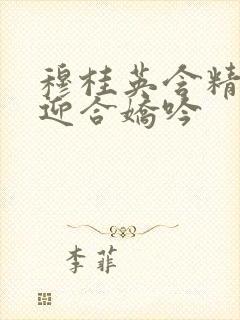 穆桂英含精
迎合嬌吟
李菲